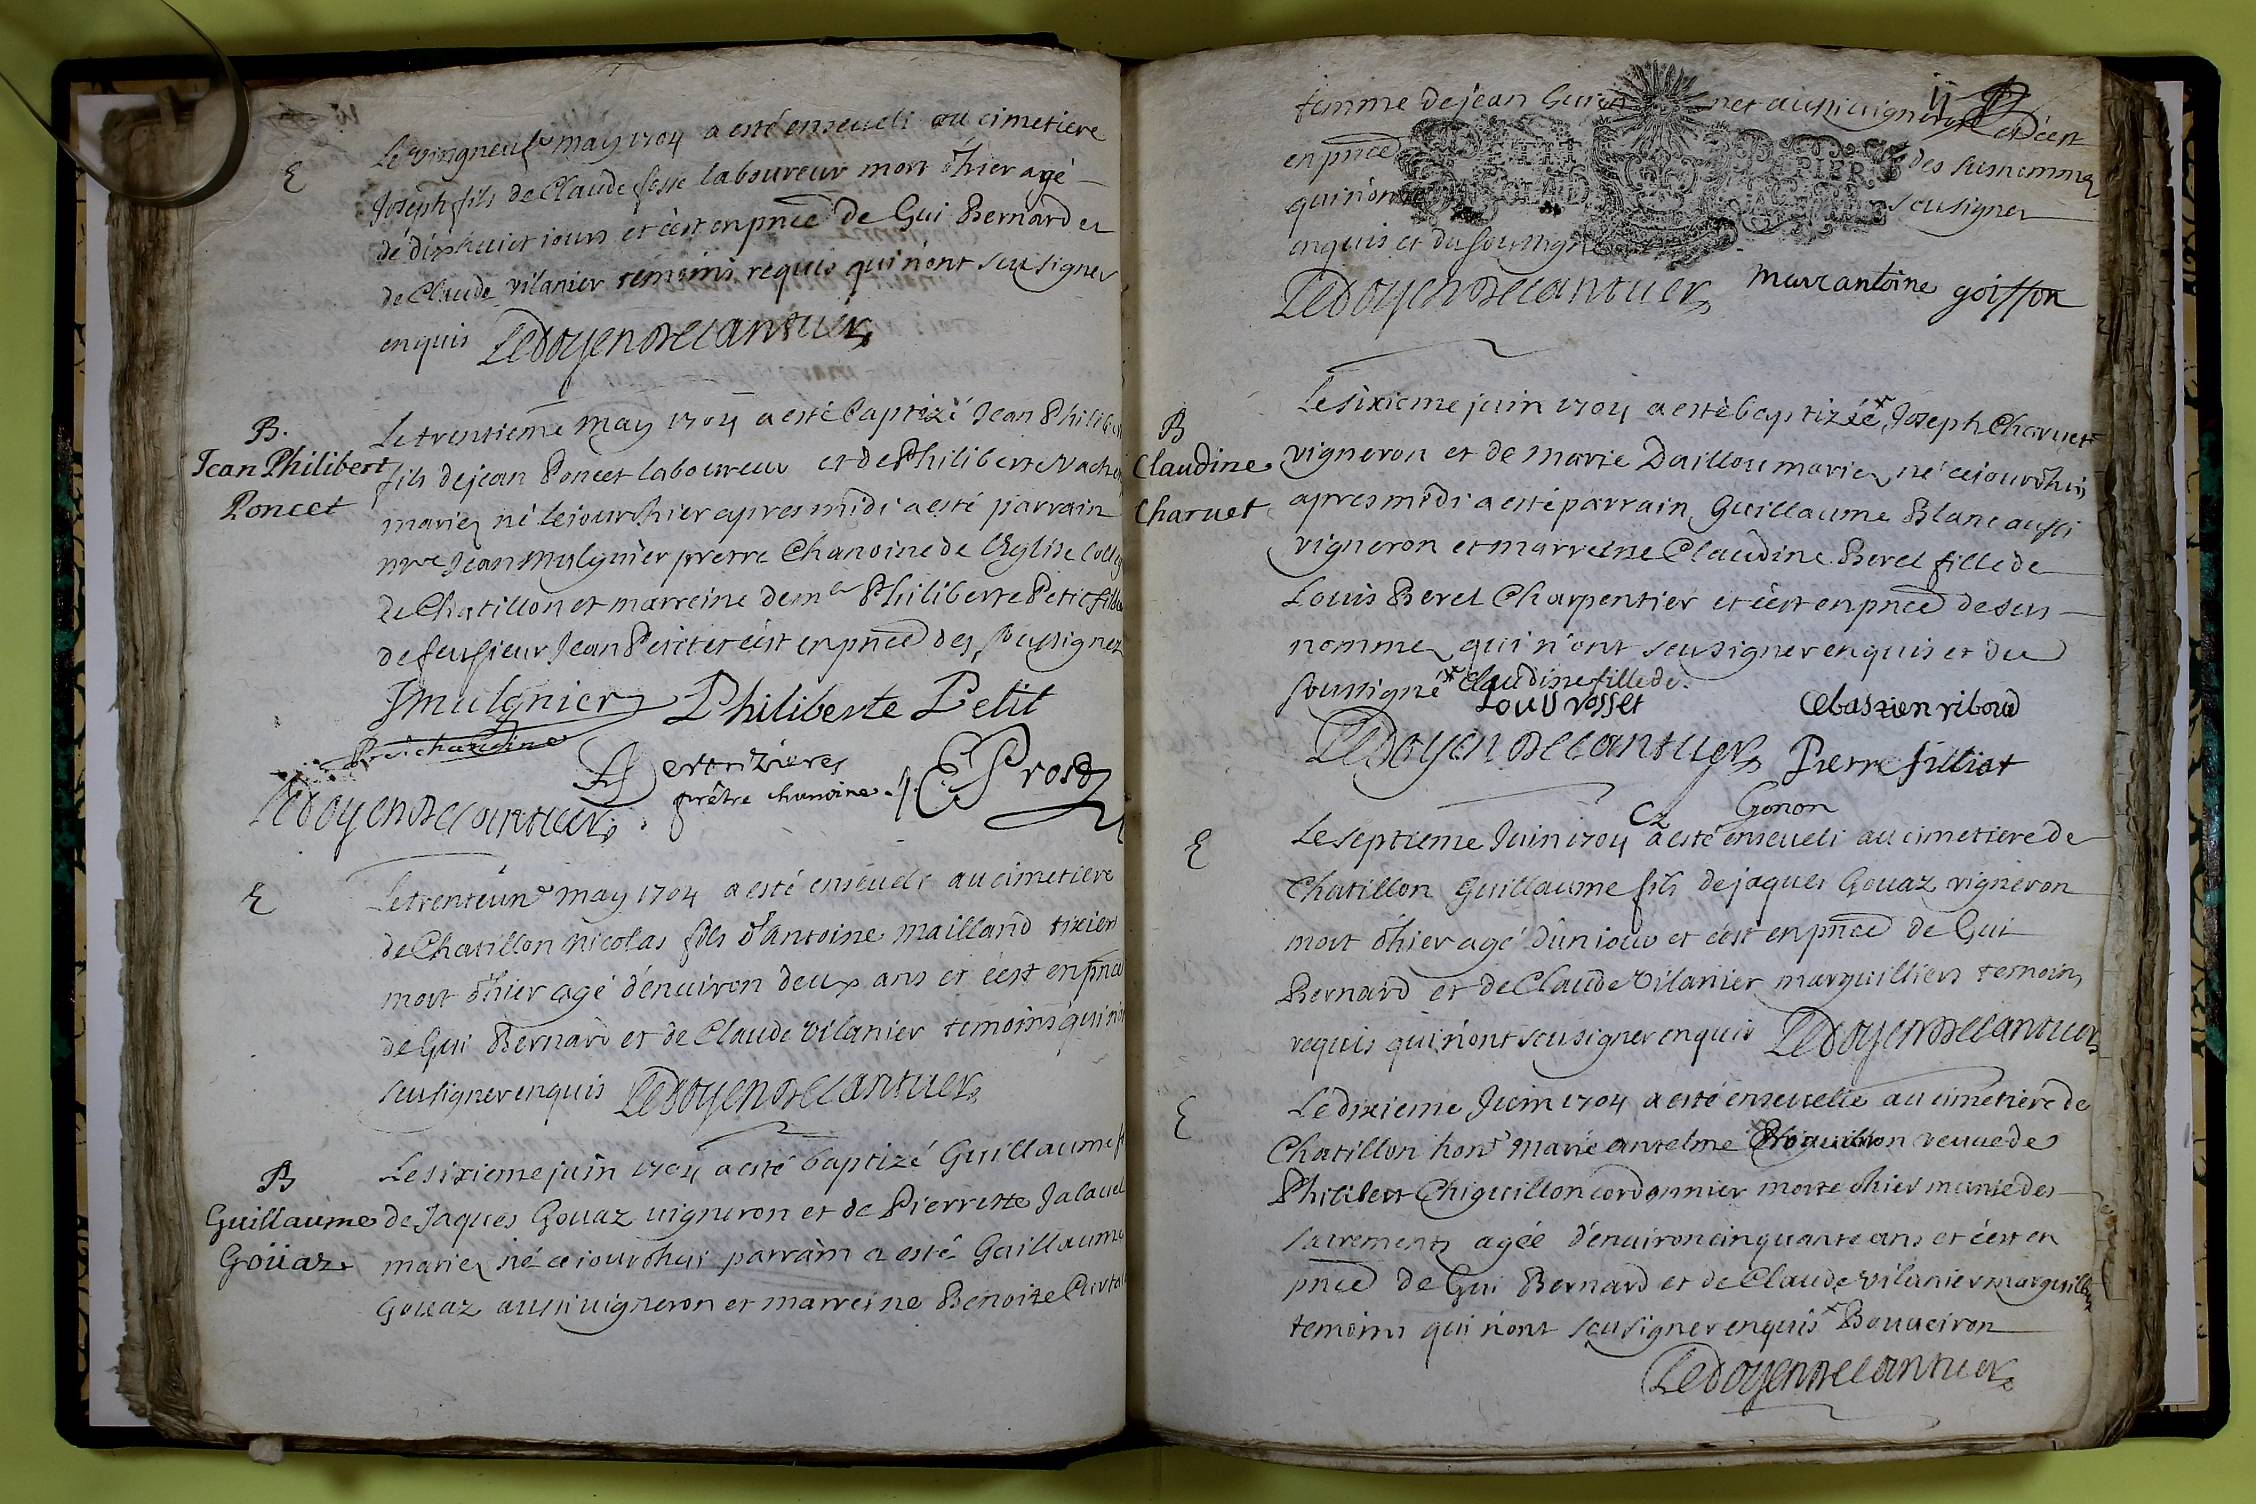 E
Le vingneuf may 1704 a esté enseveli au cimetiere
Joseph fils de Claude fesse laboureur mort d'hier agé
de dixhuict jours et c'est en pnce de Gui Bernard et
de Claude vilanier temoins requis qui n'ont seu signer
enquis Ledoyen Decantuer
B.
Jean Philibert
Poncet
Le trentieme may 1704 a esté baptizé Jean Philib
fils de jean Poncet laboureur et de Philiberte
mariez né le jour d'hier apres midi a esté parrain
mre Jean Mulgnier prettre Chanoine de l'Eglise Colleg
de Chatillon et marreine demle Philiberte Petit fille
de feu sieur Jean Petit et c'est en pnce des soussignez
Jmulgnier Philiberte Petit
pre chanoine
Desvrizieres
prêtre chanoine
Prost
Ledoyen Decantuer
E
Le trenteun may 1704 a esté enseveli au cimetiere
de Chatillon Nicolas fils d'Antoine Mailland tixier
mort d'hier agé d'environ deux ans et c'est en pnce
de Gui Bernard et de Claude Vilanier temoins qui n'on
seu signer enquis Ledoyen Decantuer
B
Guillaume
Goüaz
Le sixieme juin 1704 a esté baptizé Guillaume f
de Jaques Gouaz vigneron et de Pierrette Jalavel
mariez né ce jourdhui parrain a esté Guillaume
Gouaz aussi vigneron et marreine Benoite
ij
femme de jean net aussi vigneron et c'est
en pnce des susnommez
qui n'ont seu signer
enquis et du soussigné
PETIT PAPIER
Ledoyen Decantuer marcantoine goiffon
B
Claudine
Charvet
Le sixieme juin 1704 a esté baptizée* Joseph Charvet
vigneron et de Marie Daillou mariez né cejourdhui
apres midi a esté parrain Guillaume Blanc aussi
vigneron et marreine Claudine Berel fille de
Louis Berel Charpentier et c'est en pnce de sus
nommez qui n'ont seu signer enquis et du
soussigné *Claudine fille de.
Louis rosset Cebastien riboud
Ledoyen Decantuer Pierre filliat
Gonon
E
Le septieme Juin 1704 a esté enseveli au cimetiere de
Chatillon Guillaume fils de jaques Gouaz vigneron
mort d'hier agé d'un jour et c'est en pnce de Gui
Bernard et de Claude Vilanier marguilliers temoins
requis qui n'ont seu signer enquis Ledoyen Decantuer
E
Le dixieme Juin 1704 a esté ensevelie au cimetiere de
Chatillon hon Marie anselme veuve de
Philibert Chiguillon cordonnier morte d'hier munie des
sacrements agée d'environ cinquante ans et c'est en
pnce de Gui Bernard et de Claude Vilanier marguilliers
temoins qui n'ont seu signer enquis *Bouveiron
Ledoyen Decantuer